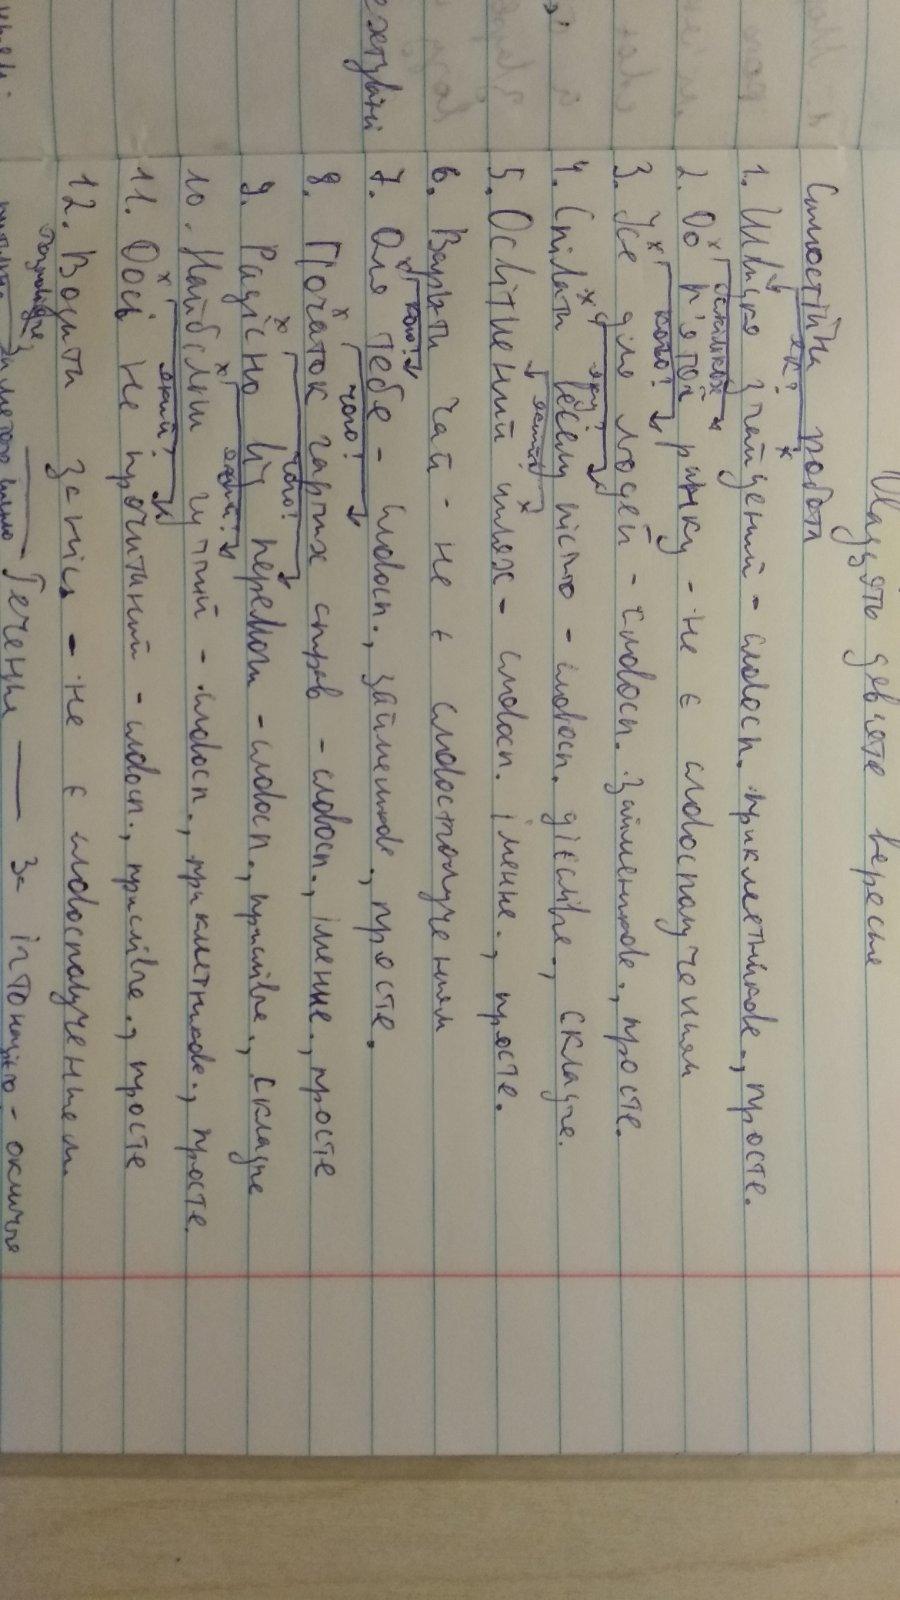 Двадцять дев'яте вересня
Самостійна робота
як?
1. Швидко знайдений - словосп. прикметников., просте.
2. До п'ятої ранку - не є словосполученням
кого?
3. Усе для людей - словосп. займенников., просте.
яку?
4. Співати веселу пісню - словосп. дієслівн., складне.
який?
5. Освітлений шлях - словосп. іменне., просте.
6. Варити чай - не є словосполученням
кого?
7. Для тебе - словосп., займенников., просте.
чого?
8. Початок гарних справ - словосп., іменне., просте
чого?
9. Радісно від перемоги - словосп., прислівн., складне
10. Найбільш гучний - словосп., прикметников., просте.
який?
11. Досі не прочитаний - словосп., прислівн., просте
12. Водити заніс - не є словосполученням.
Речення — За інтонацією - окличне